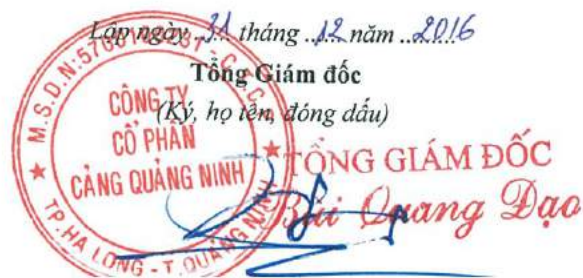 Lập ngày 31 tháng 12 năm 2016
Tổng Giám đốc
(Ký, họ tên, đóng dấu)
M.S.D.N:
CÔNG TY
CỔ PHẦN
CẢNG QUẢNG NINH
TP.HẠ LONG - T.QUẢNG NINH
TỔNG GIÁM ĐỐC
Bùi Quang Đạo